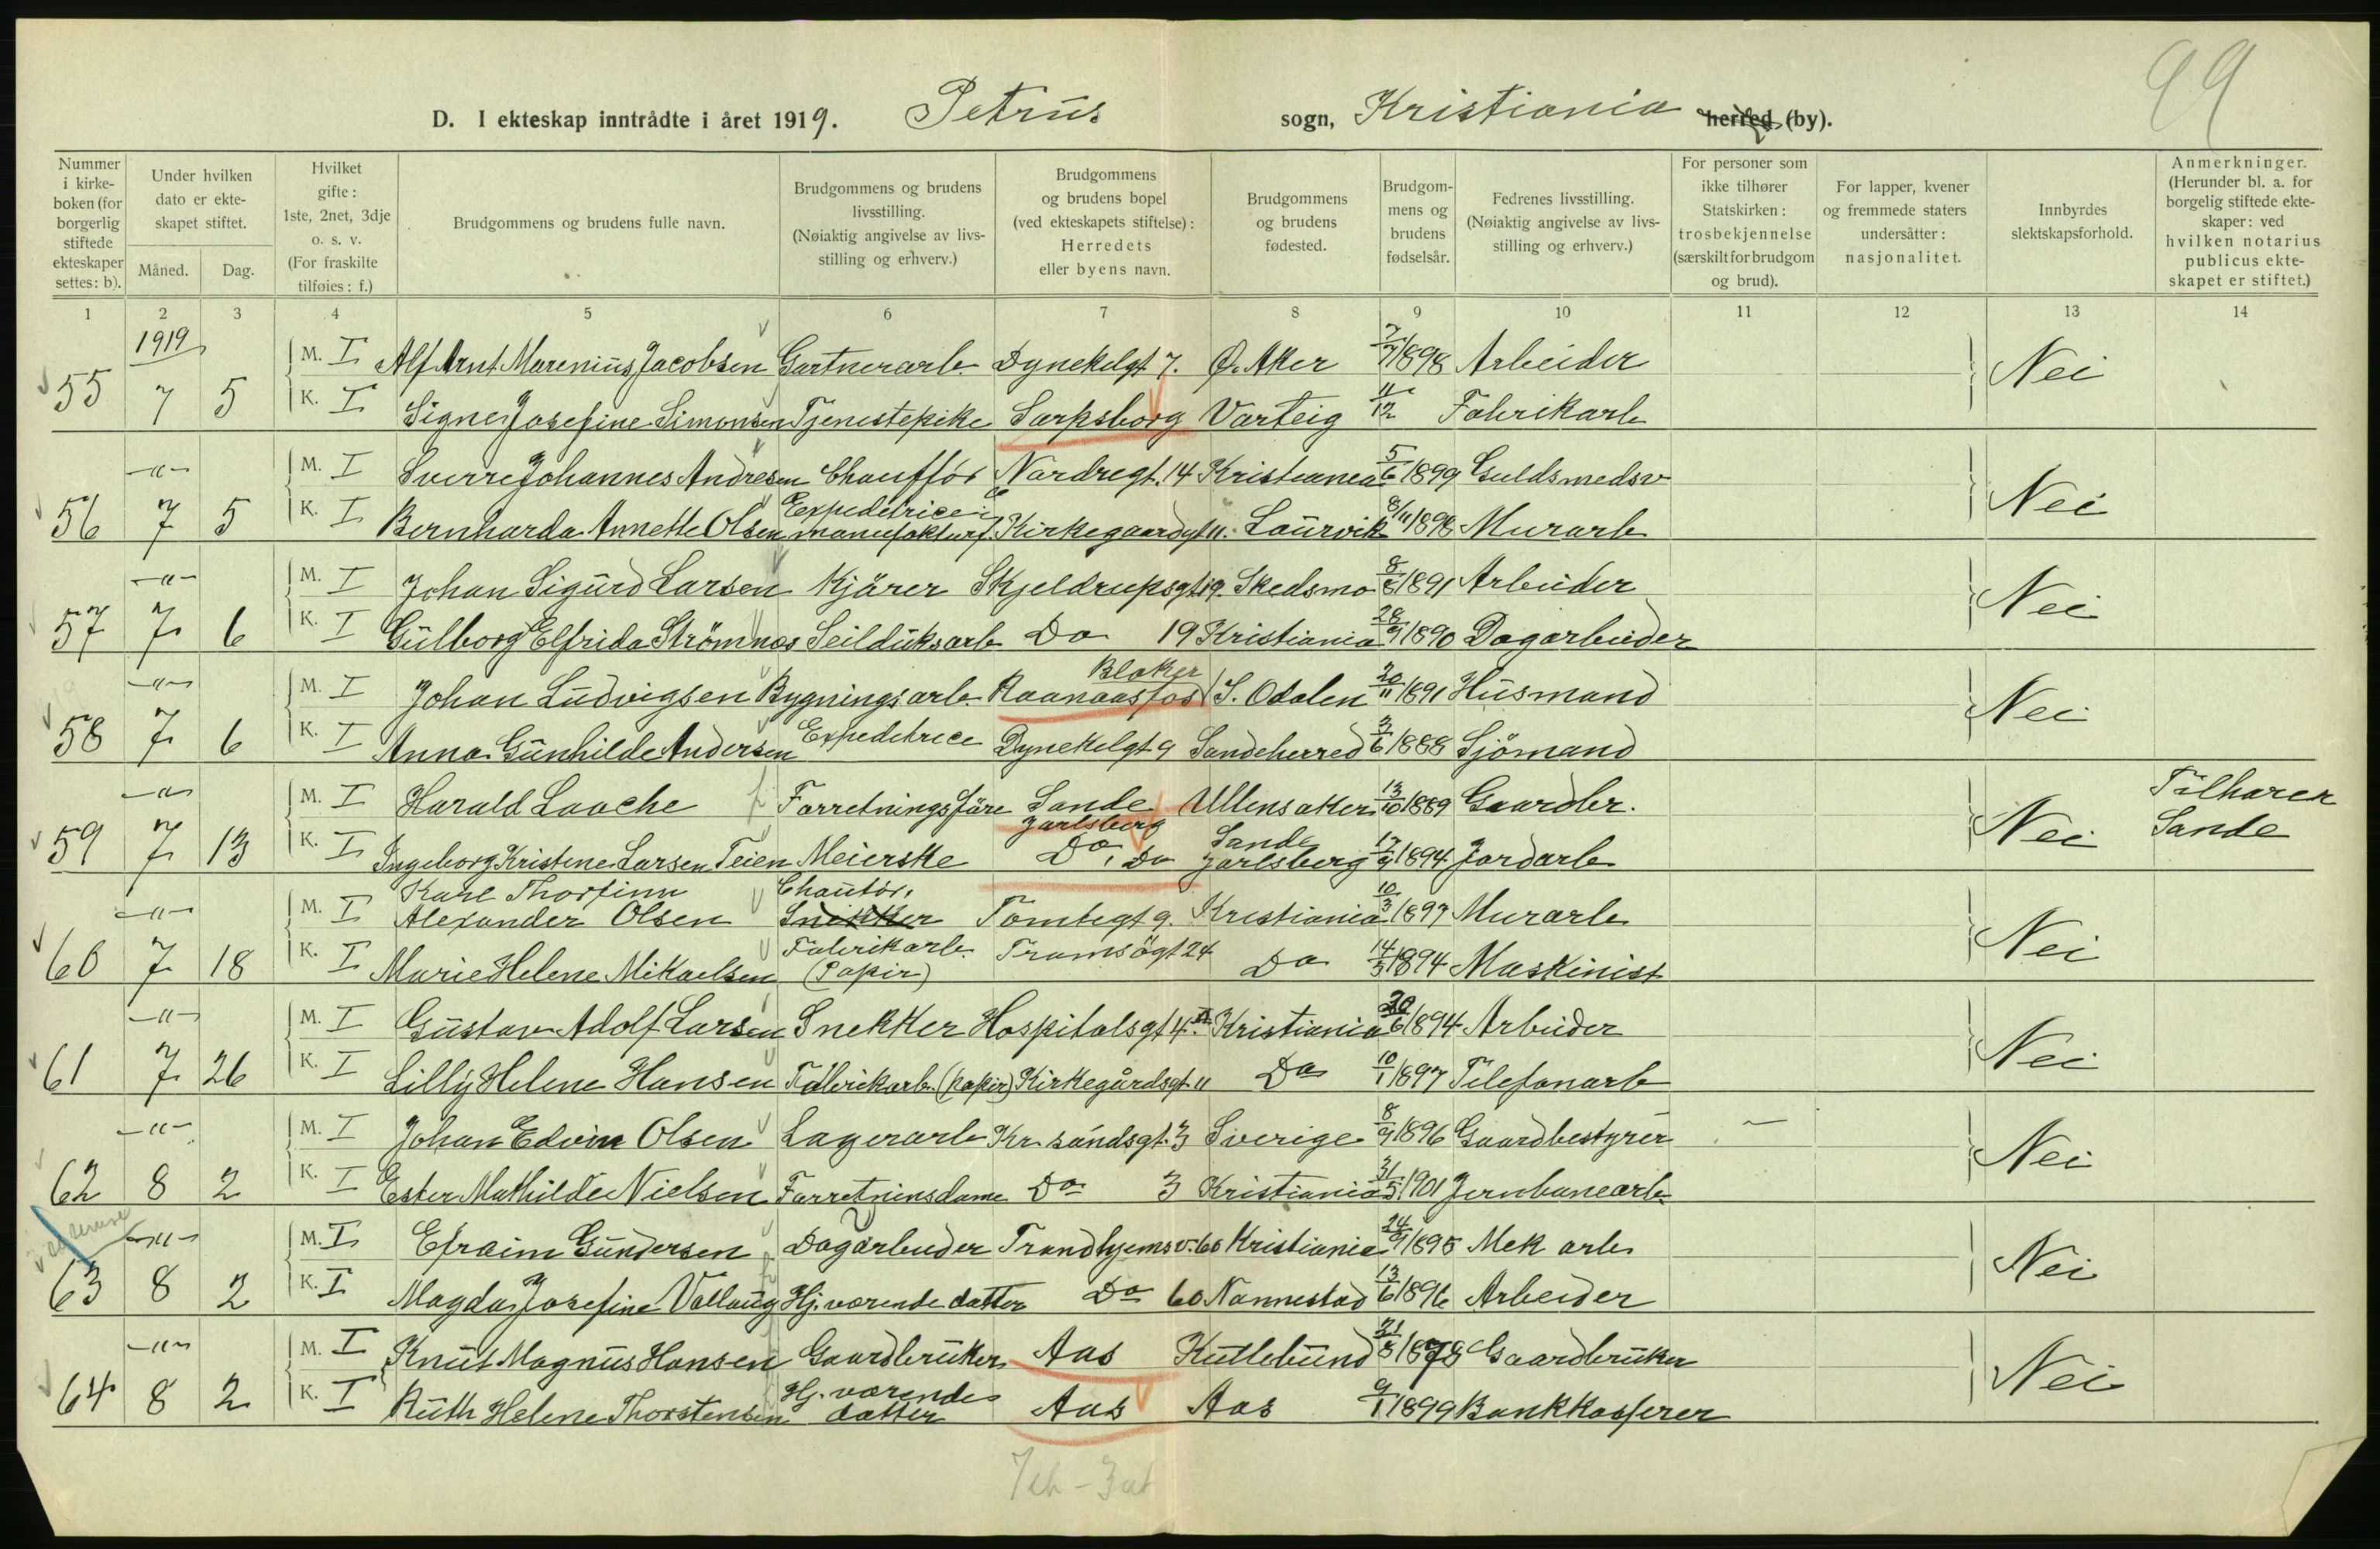 99
D. I ekteskap inntrådte i året 1919. Petrus sogn, Kristiania herred (by).
Nummer i kirkeboken (for borgerlig stiftede ekteskaper settes: b).
Under hvilken dato er ekteskapet stiftet.
Måned. Dag.
Hvilket gifte: 1ste, 2net, 3dje o. s. v. (For fraskilte tilføies: f.)
Brudgommens og brudens fulle navn.
Brudgommens og brudens livsstilling. (Nøiaktig angivelse av livsstilling og erhverv.)
Brudgommens og brudens bopel (ved ekteskapets stiftelse): Herredets eller byens navn.
Brudgommens og brudens fødested.
Brudgommens og brudens fødselsår.
Fedrenes livsstilling. (Nøiaktig angivelse av livsstilling og erhverv.)
For personer som ikke tilhører Statskirken: trosbekjennelse (særskilt for brudgom og brud).
For lapper, kvener og fremmede staters undersåtter: nasjonalitet.
Innbyrdes slektskapsforhold.
Anmerkninger. (Herunder bl. a. for borgelig stiftede ekteskaper: ved hvilken notarius publicus ekteskapet er stiftet.)
1 2 3 4 5 6 7 8 9 10 11 12 13 14
1919
M. I Alf Arnt Marenius Jacobsen Gartnerarb. Dynekilgt 7. Ø. Aker 7/7 1898 Arbeider Nei
55 7 5 K. I Signe Josefine Simonsen Tjenestepike Sarpsborg Varteig 11/12 Fabrikarb
-"- M. I Sverre Johannes Andresen Chauffør Nordregt. 14 Kristiania 5/6 1899 Guldsmedsv Nei
56 7 5 K. I Bernharda Annette Olsen Expeditrice i manufakturf. Kirkegaardgt 11. Laurvik 8/11 1898 Murarb
-"- M. I Johan Sigurd Larsen Kjärer Skjeldrupsgt 19. Skedsmo 8/8 1891 Arbeider Nei
57 7 6 K. I Gulborg Elfrida Strömnes Seilduksarb Do 19 Kristiania 28/9 1890 Dagarbeider
-"- M. I Johan Ludvigsen Bygningsarb. Blaker Raanaasfos S. Odalen 20/11 1891 Husmand Nei
58 7 6 K. I Anna Gunhilde Andersen Expeditrice Dynekilgt 9 Sandeherred 3/6 1888 Sjömand
-"- M. I Harald Laache Forretningsføre Sande Jarlsberg Ullensaker 13/10 1889 Gaardbr. Nei Tilhører Sande
59 7 13 K. I Ingeborg Kristine Larsen Teien Meierske Do, Do Sande Jarlsberg 17/9 1894 Jordarb
-"- M. I Karl Thorfinn Alexander Olsen Chauför. Snekker Tomtegt 9. Kristiania 10/3 1897 Murarb Nei
60 7 18 K. I Marie Helene Mikaelsen Fabrikarb. (Papir) Tromsögt 24 Do 14/3 1894 Maskinist
-"- M. I Gustav Adolf Larsen Snekker Hospitalsgt 4 II Kristiania 20/6 1894 Arbeider Nei
61 7 26 K. I Lilly Helene Hansen Fabrikarb. (papir) Kirkegårdsgt. 11 Do 10/1 1897 Telefonarb
-"- M. I Johan Edvin Olsen Lagerarb Kr. sandsgt. 3 Sverige 8/9 1896 Gaardbestyrer - Nei
62 8 2 K. I Ester Mathilde Nielsen Forretninsdame Do 3 Kristiania 31/5 1901 Jernbanearb.
-"- M. I Efraim Gundersen Dagarbeider Trondhjemsv. 60 Kristiania 24/9 1895 Mek arb Nei
63 8 2 K. I Magda Josefine Vollaug Hj. værende datter Do 60 Nannestad 13/6 1896 Arbeider
-"- M. I Knut Magnus Hansen Gaardbruker Aas Kullebund 21/8 1878 Gaardbruker Nei
64 8 2 K. I Ruth Helene Thorstensen Hj. værende datter Aas Aas 9/1 1899 Bankkasserer